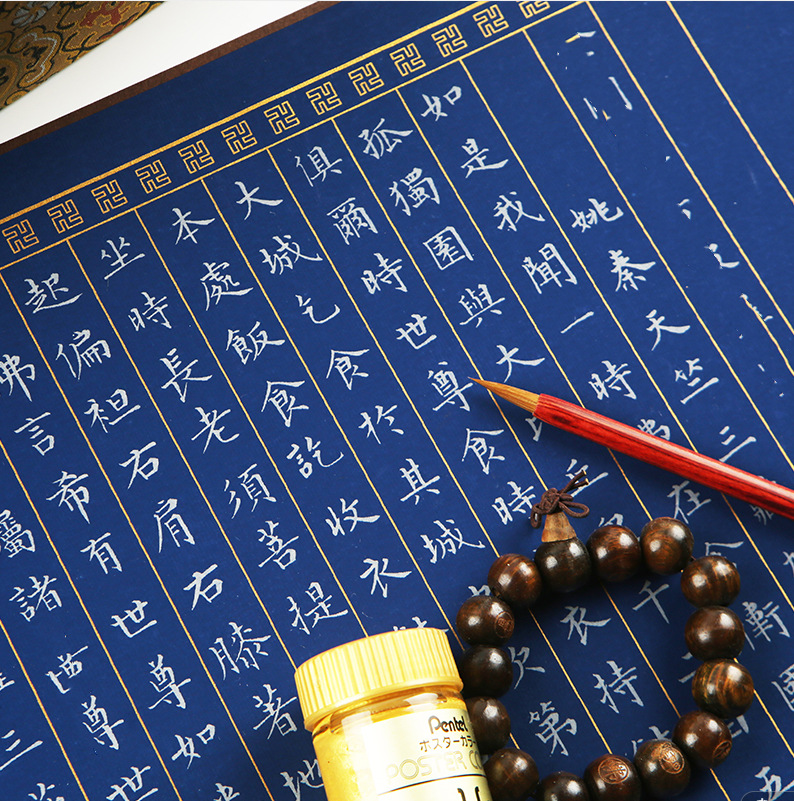 姚秦天竺三藏
如是我聞一時佛在舍衛國
孤獨園與大比丘眾千
俱爾時世尊食時衣持
大城乞食於其城次第
本處飯食訖收衣
坐時長老須菩提
起偏袒右肩右膝著地
佛言希有世尊如
屬諸尊世
三
Pentel
ポスターカラー
POSTER CO